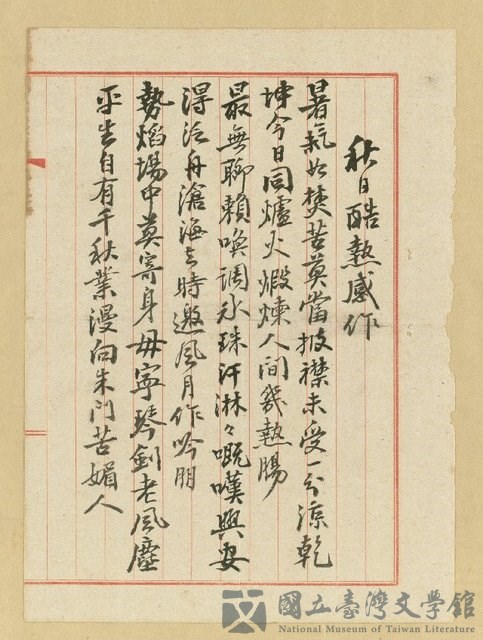 秋日酷熱感作
暑氣如焚苦莫當披襟未受一分涼乾
坤今日同爐火煅煉人間幾熱腸
最無聊賴喚調冰珠汗淋々嘅嘆興安
得泛舟滄海去時邀風月作吟朋
勢焰場中莫寄身毋寧琴劍老風塵
平生自有千秋業漫向朱門苦媚人
國立臺灣文學館
National Museum of Taiwan Literature